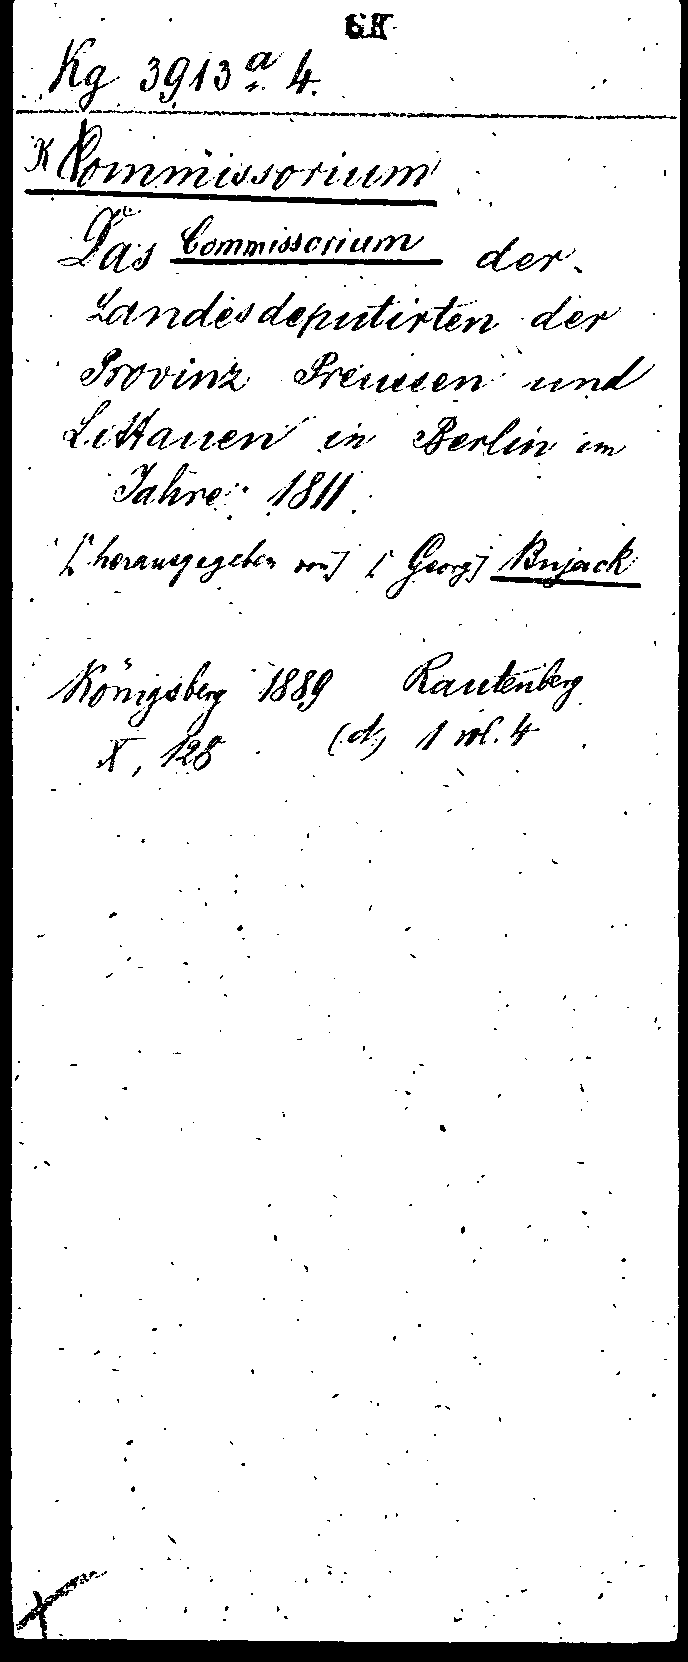 Kg 3913 a 4.
K Commissorium
Das Commissorium der
Landesdeputirten der
Provinz Preussen und
Littauen in Berlin im
Jahre 1811.
[herausgegeben von] [Georg] Bujack
Königsberg 1889 Rautenberg
X, 128 (d) 1 vol. 4